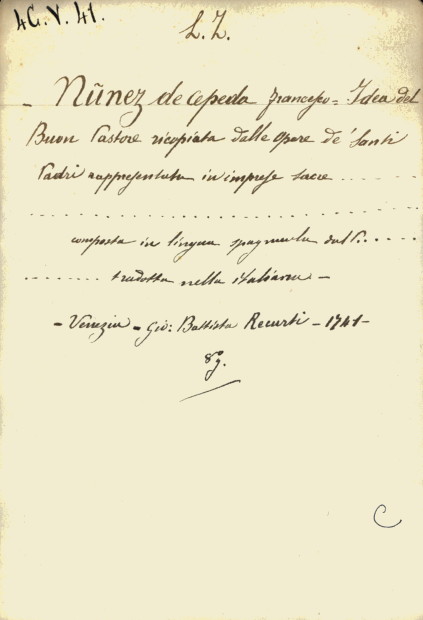 4G.V.41.
L.Z.
- Nũnez de Cepeda Francesco = Idea del
Buon Pastore ricopiata dalle Opere de' Santi
Padri rappresentata in imprese sacre ..........
........................................
composta in lingua spagnuola dal P. .....
......... tradotta nella italiana -
- Venezia = Gio: Battista Recurti - 1741 -
8º.
C